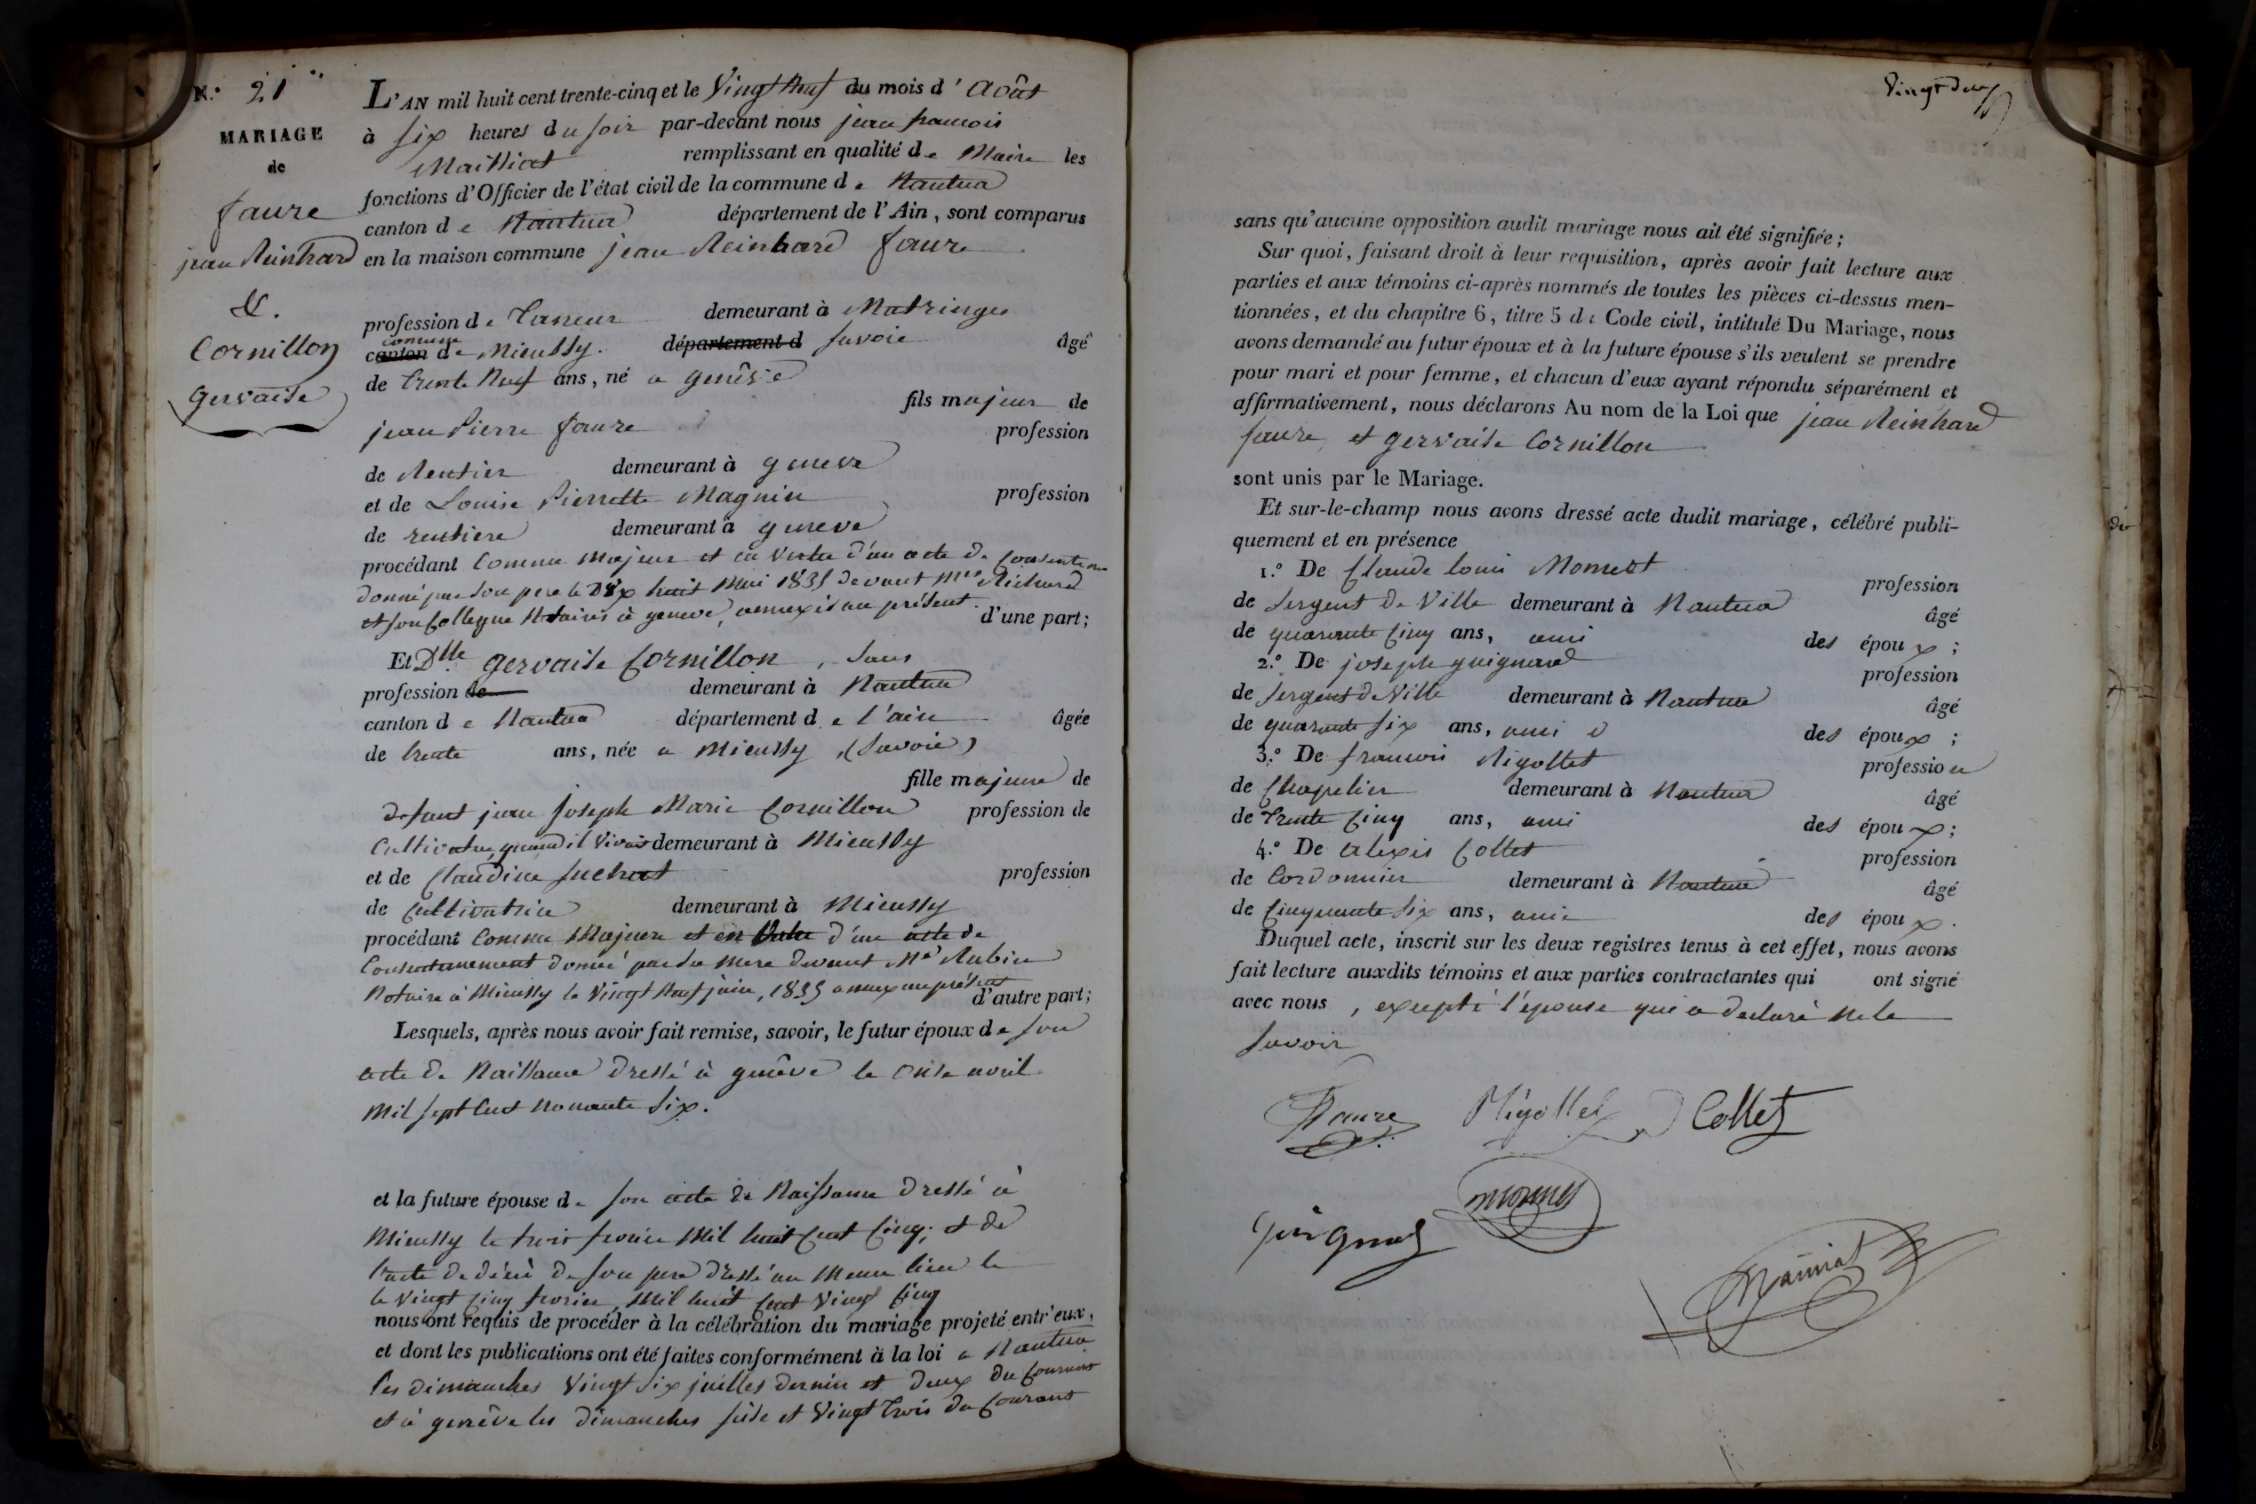 N.° 21
MARIAGE
de
faure
jean Reinhard
&.
Cornillon
gervaise
L'AN mil huit cent trente-cinq et le Vingt Neuf du mois d' Août
à six heures du soir par-devant nous jean francois
Mailliat remplissant en qualité de Maire les
fonctions d'Officier de l'état civil de la commune de Nantua
canton de Nantua département de l'Ain, sont comparus
en la maison commune jean Reinhard faure
profession de Tanneur demeurant à Matringes
commune
canton de Mieussy. département d Savoie âgé
de trente Neuf ans, né a genêve
fils majeur de
jean Pierre faure profession
de Rentier demeurant à geneve
et de Louise Pierrette Magnin profession
de rentiere demeurant à geneve
procédant Comme Majeur et en Vertu d'un acte de Consentement
donné par son pere le Dix huit Mai 1835 devant Mes Richard
et son Collegue Notaires à geneve, annexé au présent. d'une part;
Et Dlle gervaise Cornillon, sans
profession de demeurant à Nantua
canton de Nantua département de l'ain âgée
de trente ans, née a Mieussy, (Savoie)
fille majeure de
defunt jean joseph Marie Cornillon profession de
Cultivateur, quand il Vivait demeurant à Mieussy
et de Claudine Suchat profession
de Cultivatrice demeurant à Mieussy
procédant Comme Majeure et en Vertu d'un acte de
Consentement donné par sa Mere devant Me Rubin
Notaire à Mieussy le Vingt Neuf juin, 1835 annexé au présent d'autre part;
Lesquels, après nous avoir fait remise, savoir, le futur époux de son
acte de Naissance dressé à genêve le onse avril
Mil sept Cent Nonante six.
et la future épouse de son acte de Naissance dressé à
Mieussy le trois fevrier Mil huit Cent Cinq; et de
l'acte de décès de son pere dressé au Meme lieu le
le Vingt Cinq fevrier, Mil huit Cent Vingt Cinq
nous ont requis de procéder à la célébration du mariage projeté entr'eux,
et dont les publications ont été faites conformément à la loi a Nantua
les dimanches Vingt Six juillet dernier et deux du Courant
et à genêve les dimanches seise et Vingt trois du Courant
Vingt deux
sans qu'aucune opposition audit mariage nous ait été signifiée;
Sur quoi, faisant droit à leur requisition, après avoir fait lecture aux
parties et aux témoins ci-après nommés de toutes les pièces ci-dessus men-
tionnées, et du chapitre 6, titre 5 du Code civil, intitulé Du Mariage, nous
avons demandé au futur époux et à la future épouse s'ils veulent se prendre
pour mari et pour femme, et chacun d'eux ayant répondu séparément et
affirmativement, nous déclarons Au nom de la Loi que jean Reinhard
faure, et gervaise Cornillon
sont unis par le Mariage.
Et sur-le-champ nous avons dressé acte dudit mariage, célébré publi-
quement et en présence
1.° De Claude Louis Monnet profession
de Sergent de Ville demeurant à Nantua âgé
de quarante Cinq ans, ami des époux;
2.° De joseph guignard profession
de Sergent de Ville demeurant à Nantua âgé
de quarante six ans, ami des époux;
3.° De francois Rigollet profession
de Chapelier demeurant à Nantua âgé
de Trente Cinq ans, ami des époux;
4.° De alexis Collet profession
de Cordonnier demeurant à Nantua âgé
de Cinquante Six ans, ami des époux.
Duquel acte, inscrit sur les deux registres tenus à cet effet, nous avons
fait lecture auxdits témoins et aux parties contractantes qui ont signé
avec nous, excepté l'épouse qui a declaré ne le
savoir
Faure Rigollet Collet
Guignard Monnet
Mailliat